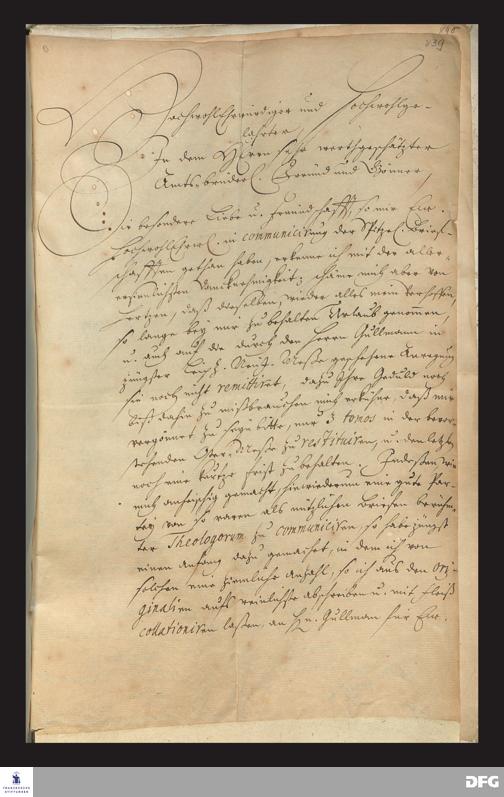 839
HochwohlEhrwürdiger und Hochwohlge-
lahrter,
In dem HErren sehr werthgeschätzter
Amts-bruder, Freünd und Gönner,
Die besondere Liebe u. freündschafft, so mir Ew.
HochwohlEhrw. in communicirung der Brieff-
schafften gethan haben, erkenne ich mit der aller-
Danknehmigkeit; schäme mich aber von
hertzen, daß dieselben, wieder alles mein verhoffen,
so lange bey mir zu behalten Urlaub genommen,
u. auch auf die durch den Herrn Gullmann in
jüngster Leipz. Messe geschehene Anregung
sie noch nicht remittiret, dazu Ihre Geduld noch
bist dahin zu mißbrauchen mich erkühne, daß mir
vergönnet zu seyn bitte, nur 3 tomos in der bevor-
stehenden Oster-Messe zu restituiren, u. den letzten
noch eine kurtze frist zu behalten. Indessen, wie
mich anheischig gemacht, hinwiederum eine gute Par-
tey von so raren als nützlichen briefen berühm-
ter Theologorum zu communiciren, so habe jüngst
einen anfang dazu gemachet, in dem ich von
solchen eine ziemliche anzahl, so ich aus den Ori-
ginalien aufs reinlichste abschreiben u. mit fleiß
collationiren lassen, an Hn. Gullman für Ew.
FRANCKESCHE STIFTUNGEN
DFG